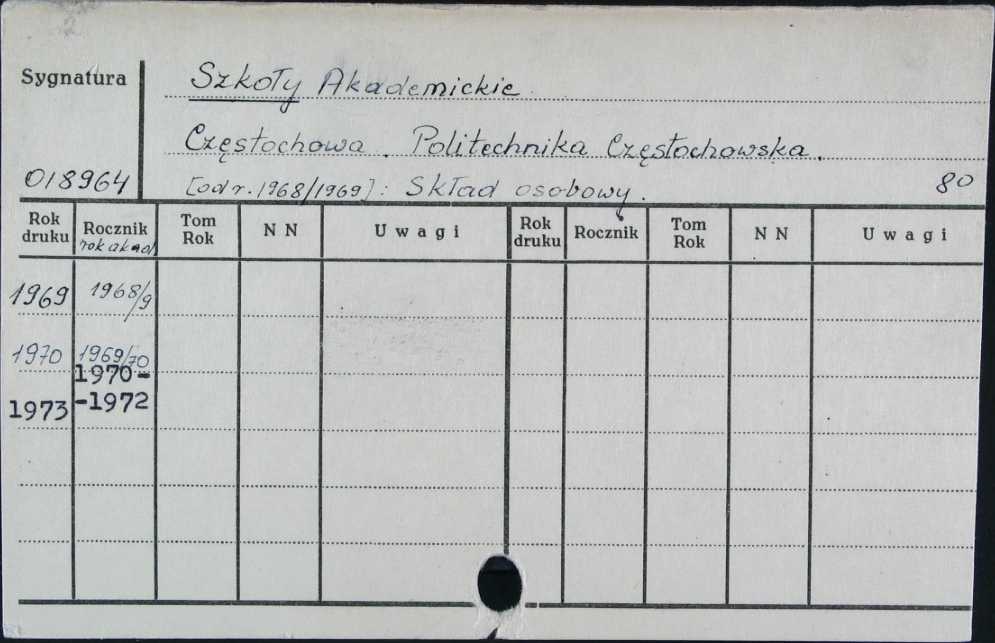 Sygnatura
Szkoły Akademickie
Częstochowa. Politechnika Częstochowska.
018964
[od r. 1968/1969]: Skład osobowy.
80
Rok druku Rocznik rok akad Tom Rok N N Uwagi Rok druku Rocznik Tom Rok N N Uwagi
1969 1968/9
1970 1969/70
1970-
1973 -1972